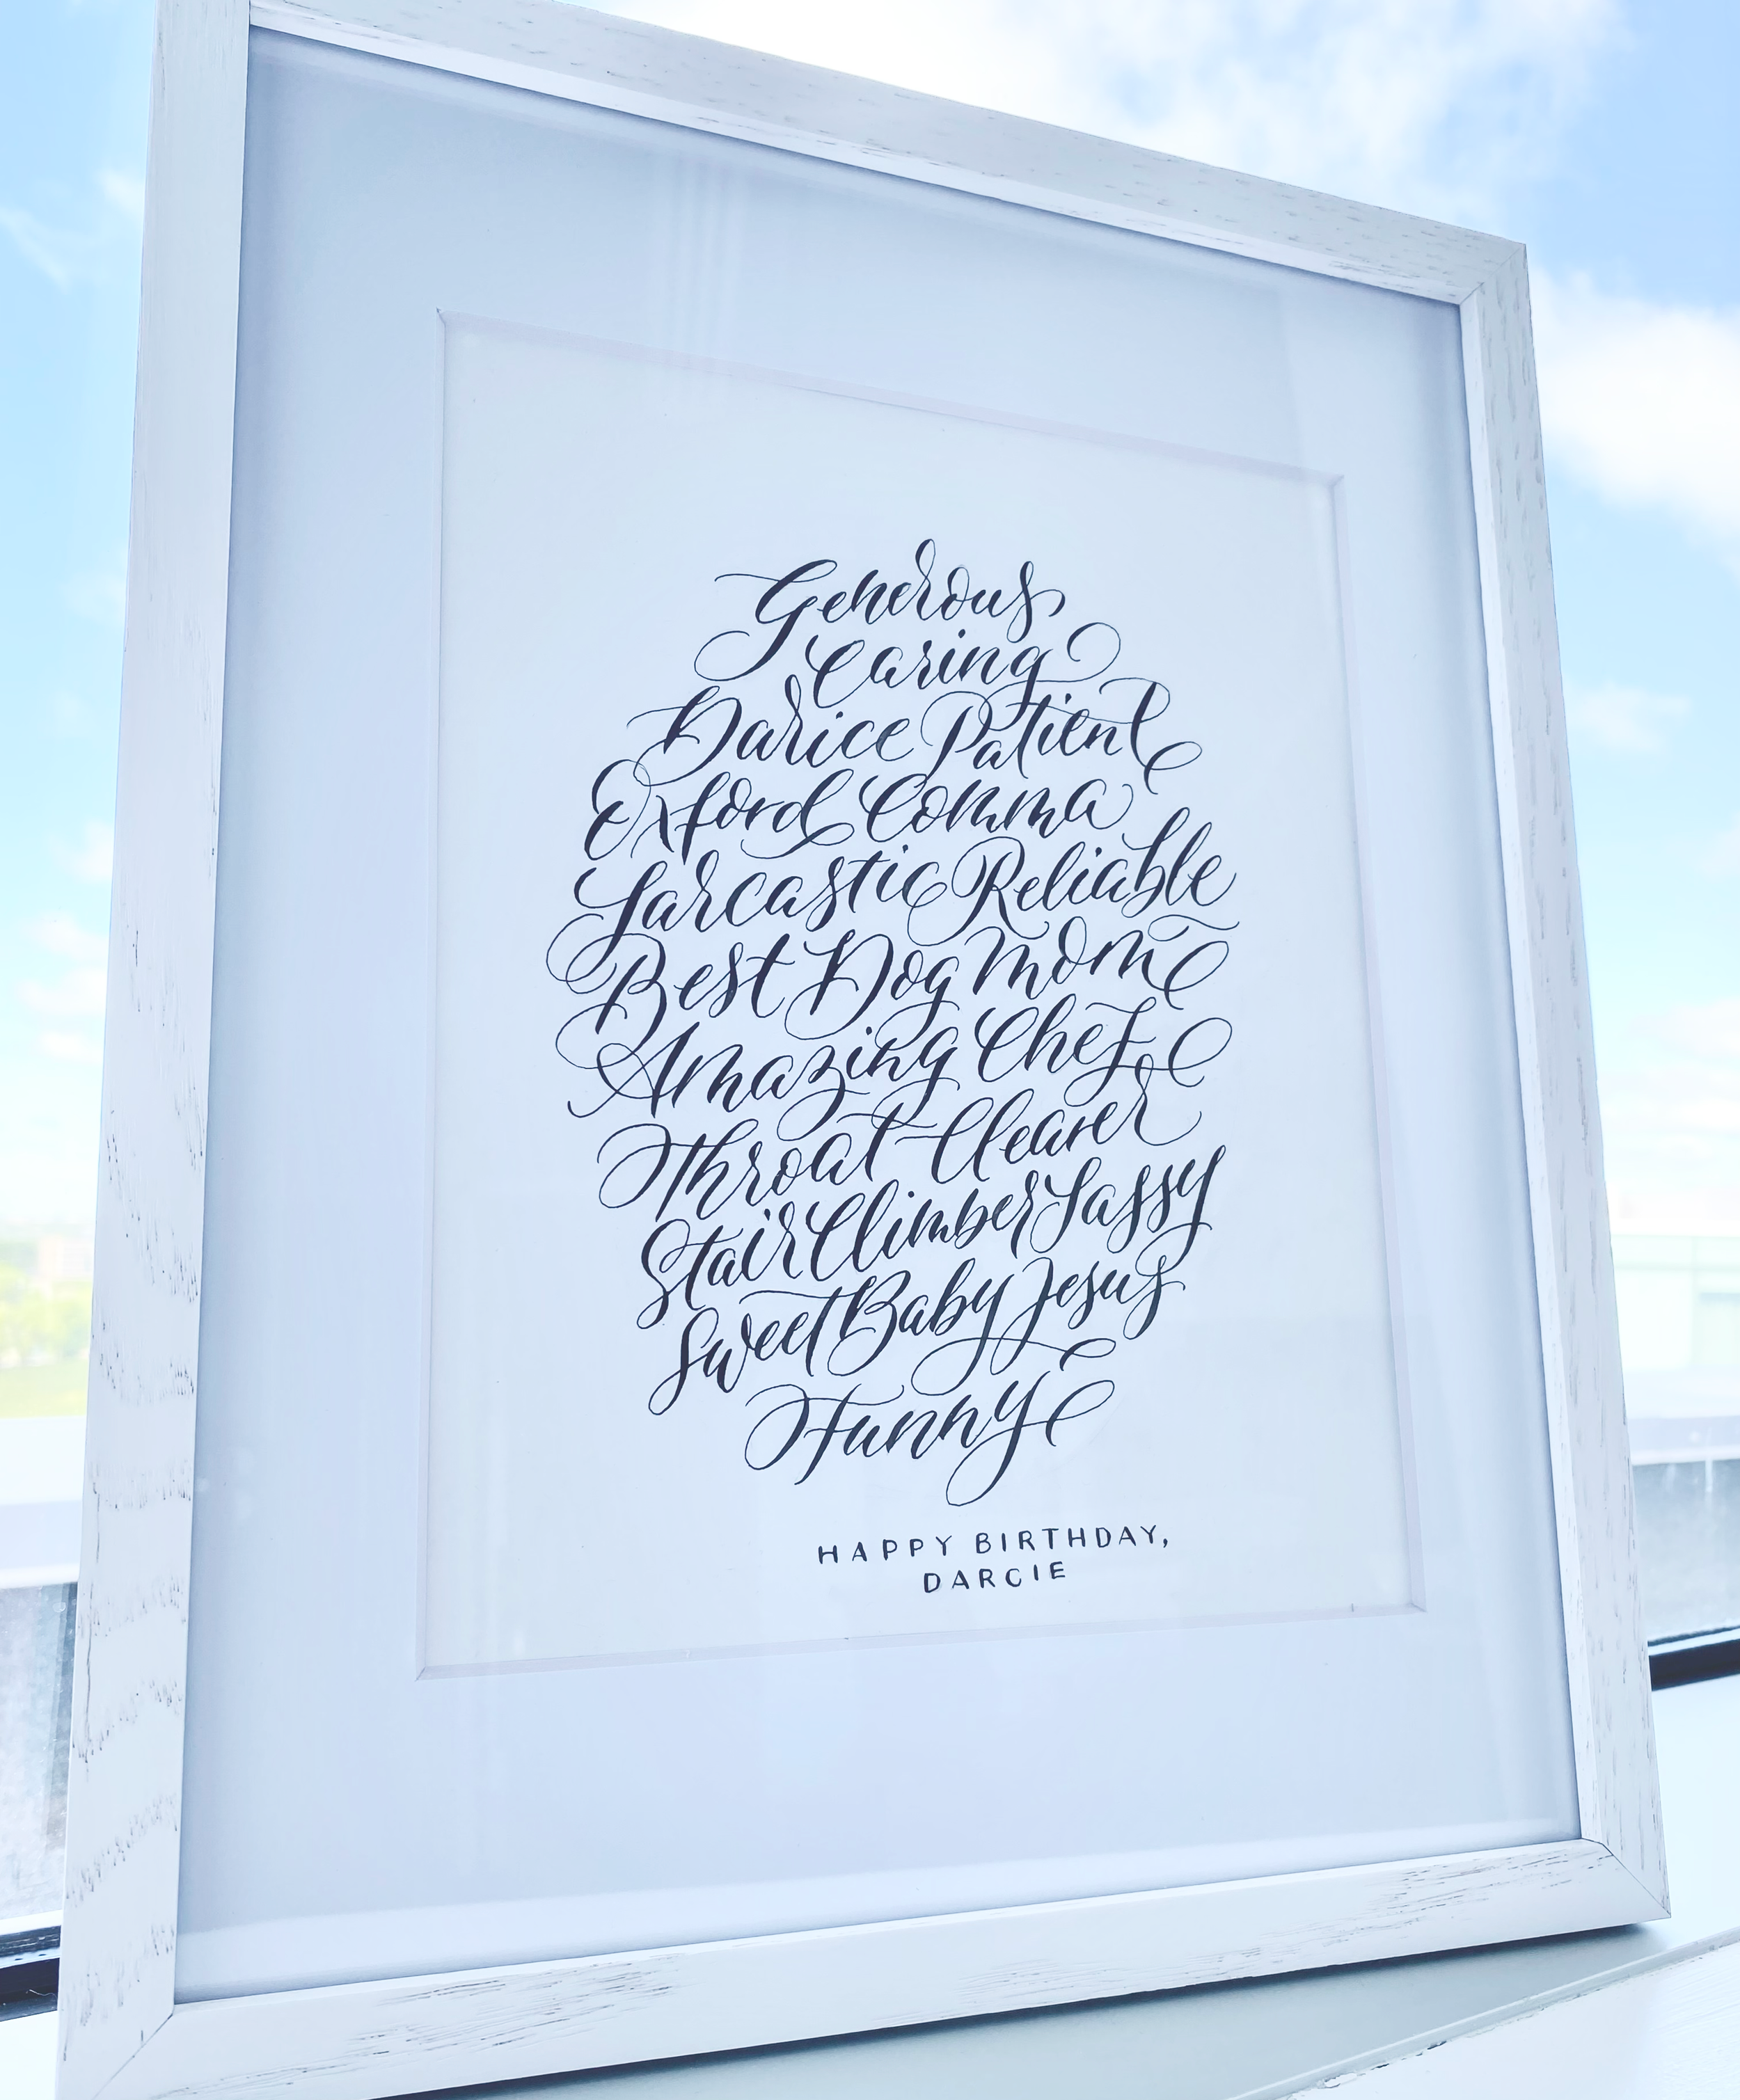 Generous
Caring
Darice Patient
Oxford Comma
Sarcastic Reliable
Best Dog Mom
Amazing Chef
Throat Clearer
Stair Climber Sassy
Sweet Baby Jesus
Funny
HAPPY BIRTHDAY,
DARCIE